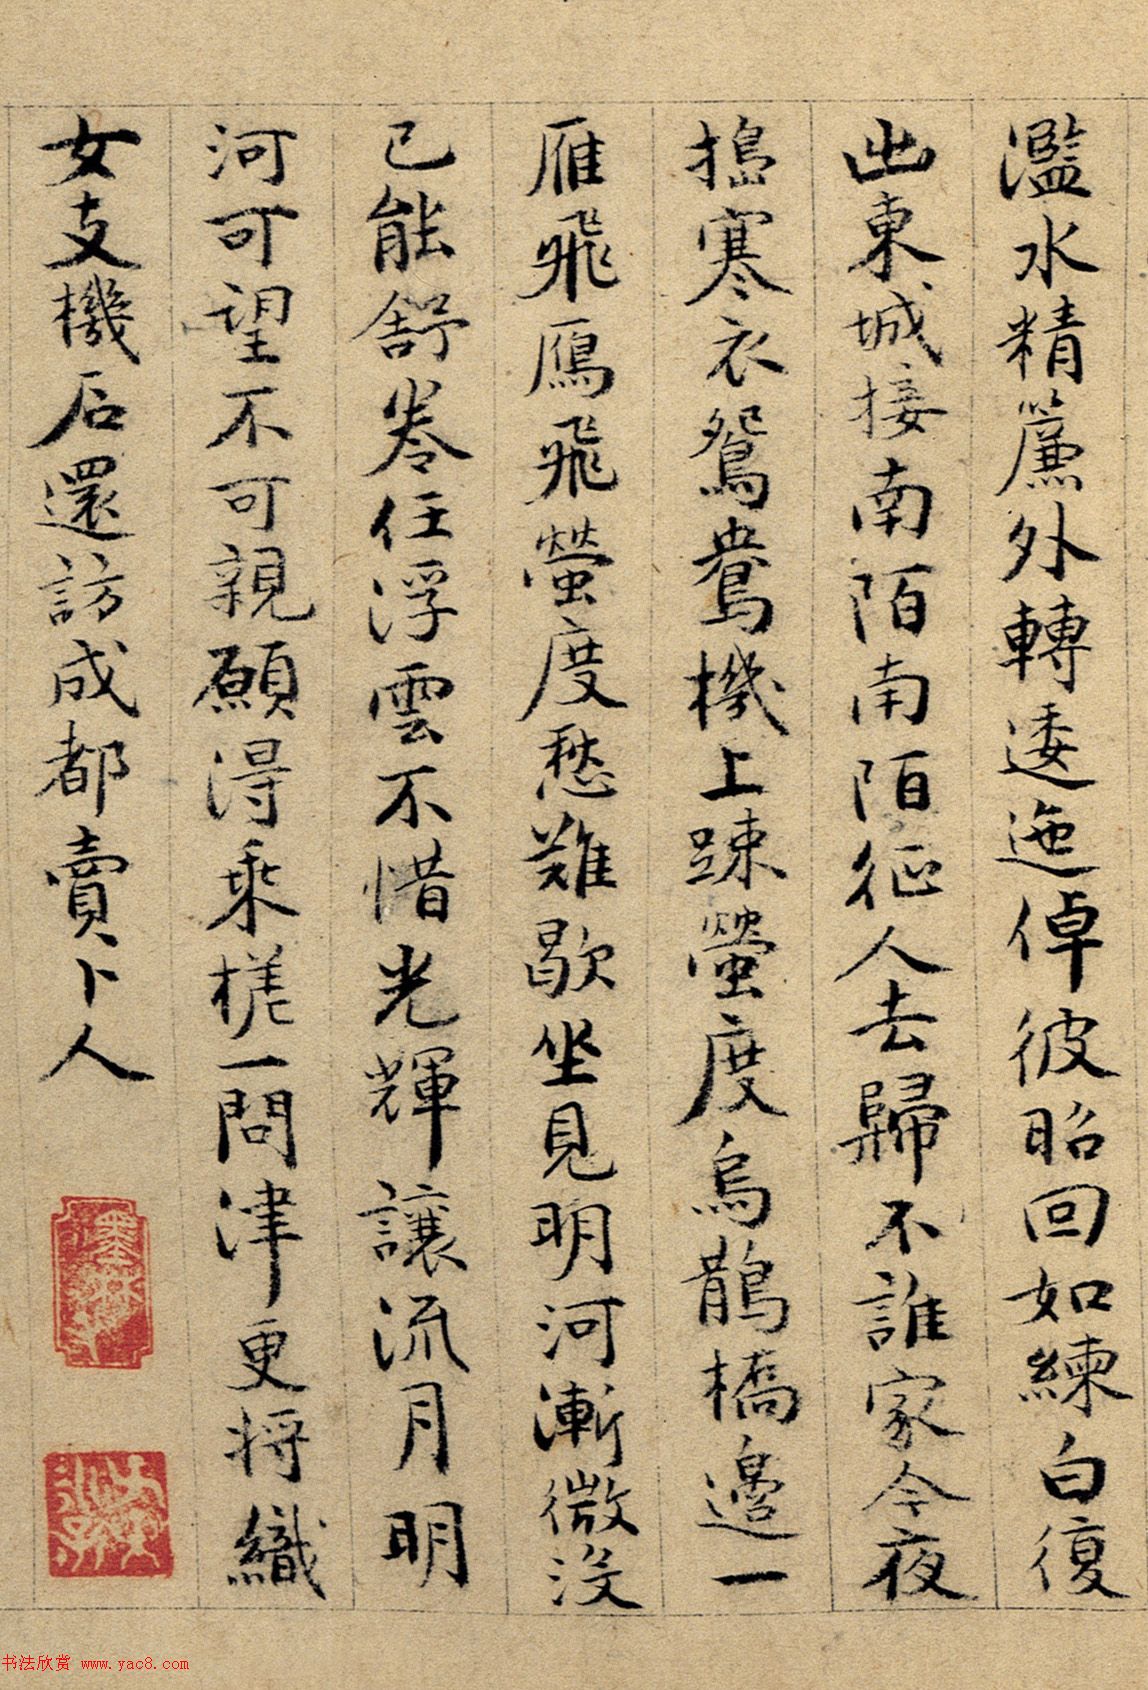 濫水精簾外轉逶迤倬彼昭回如練白復
出東城接南陌南陌征人去歸不誰家今夜
搗寒衣鴛鴦機上踈螢度烏鵲橋邊一
雁飛飛鴈飛螢度愁難歇坐見明河漸微没
已能舒卷任浮雲不惜光輝讓流月明
河可望不可親願得乘槎一問津更將織
女支機石還訪成都賣卜人
书法欣赏 www.yac8.com